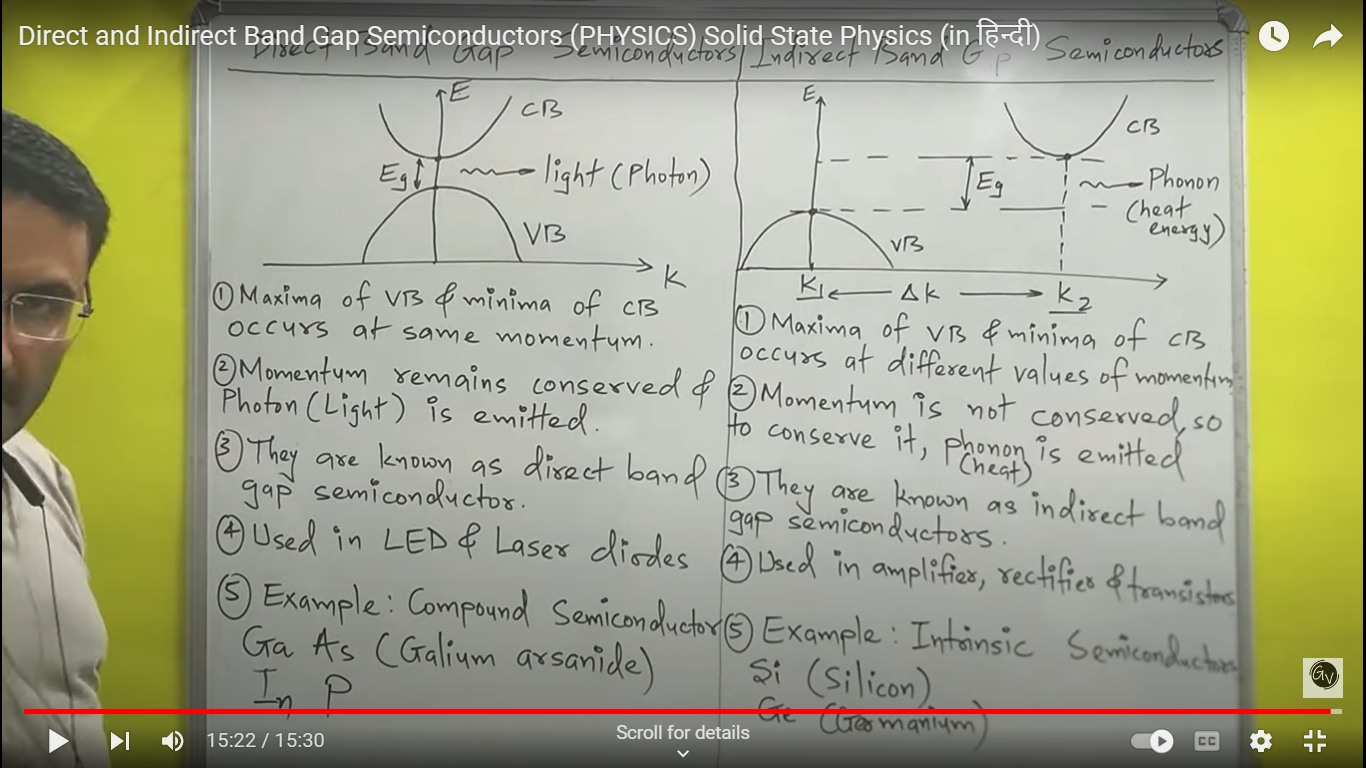 Direct and Indirect Band Gap Semiconductors (PHYSICS) Solid State Physics (in हिन्दी)
Direct Band Gap Semiconductors
E
CB
Eg
light (Photon)
VB
K
① Maxima of VB & minima of CB
occurs at same momentum.
② Momentum remains conserved &
Photon (Light) is emitted.
③ They are known as direct band
gap semiconductor.
④ Used in LED & Laser diodes
⑤ Example: Compound Semiconductor
Ga As (Galium arsanide)
In P
Indirect Band Gap Semiconductors
E
CB
Eg
Phonon
(heat
energy)
VB
K1
Δk
K2
① Maxima of VB & minima of CB
occurs at different values of momentum
② Momentum is not conserved, so
to conserve it, phonon is emitted
(heat)
③ They are known as indirect band
gap semiconductors.
④ Used in amplifier, rectifier & transistors
⑤ Example: Intrinsic Semiconductors
Si (Silicon)
Ge (Germanium)
GV
15:22 / 15:30
Scroll for details
CC